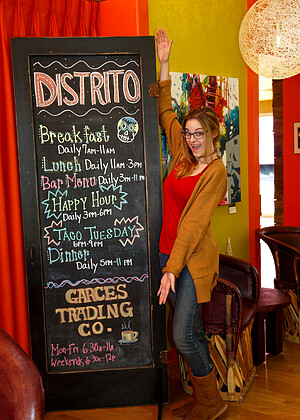 DISTRITO
Breakfast
Daily 7am-11am
Lunch Daily 11am-3pm
Bar Menu Daily 3pm-11pm
Happy Hour
Daily 3pm-6pm
Taco Tuesday
6pm-9pm
Dinner
Daily 5pm-11pm
GARCES
TRADING
CO.
Mon-Fri 6:30a-11a
Weekends 6:30a-12p